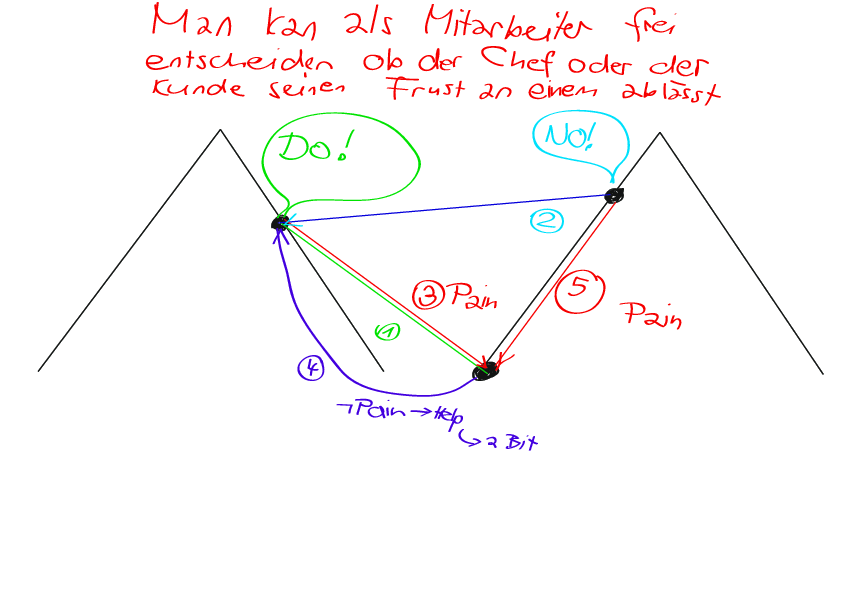 Man kan als Mitarbeiter frei
entscheiden ob der Chef oder der
Kunde seinen Frust an einem ablässt
Do!
NO!
2
3 Pain
5
Pain
1
4
¬Pain → Help
↳ 2 Bit